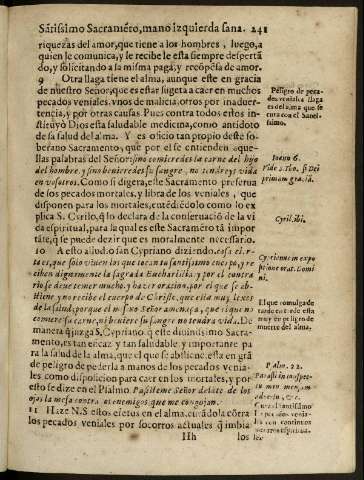 Sãtissimo Sacramẽto, mano izquierda sana. 241
riquezas del amor, que tiene a los hombres, luego, a
quien le comunica, y le recibe le esta siempre despertã
do, y solicitando a la misma paga, y recõpẽsa de amor.
9 Otra llaga tiene el alma, aunque este en gracia
de nuestro Señor, que es estar sugeta a caer en muchos
pecados veniales, vnos de malicia, otros por inaduer-
tencia, y por otras causas. Pues contra todos estos in-
stituyò Dios esta saludable medicina, como antidoto
de la salud del alma. Y es oficio tan propio deste so-
berano Sacramento, que por el se entienden aque-
llas palabras del Señor: sino comieredes la carne del hijo
del hombre, y sino beuieredes su sangre, no tendreys vida
en vosotros. Como si dixera, este Sacramento preserua
de los pecados mortales, y libra de los veniales, que
disponen para los mortales, entẽdiẽdolo como lo ex
plica S. Cyrilo, q̃ lo declara de la conseruaciõ de la vi
da espiritual, para la qual es este Sacramẽto tã impor
tãte, q̃ se puede dezir que es moralmente necessario.
10 A esto aludio san Cypriano diziendo.
tes, que solo viuen los que tocan su santissimo cuerpo, y re
ciben dignamente la sagrada Eucharistia, y por el contra
rio se deue temer mucho, y hazer oracion, por el que se abs-
tiene, y no recibe el cuerpo de Christo, que està muy lexos
de la salud, porque el mismo Señor amenaça, que si no
comiere su carne, ni beuiere su sangre no tendra vida. De
manera q̃ juzga S. Cypriano, q̃ este diuinissimo Sacra-
mento, es tan eficaz, y tan saludable, y importante para
la salud de la alma, que el que se abstiene, està en grã
de peligro de perderla a manos de los pecados venia-
les como disposicion para caer en los mortales, y por
esto se dize en el Psalmo. Pusisteme Señor delãte de los
ojos la mesa contra los enemigos que me congojan.
11 Haze N.S estos efetos en el alma, curãdola cõtra
los pecados veniales por socorros actuales q̃ imbia
Hh los
Peligro de peca-
dos veniales llaga
es del alma que se
cura con el Santi-
ssimo.
Ioann. 6.
Vide S. Tho. si Dei
primam gratiã.
Cyril. ibi.
Cyprian. in ex
positione orat. Domi
ni.
El que comulga de
tarde en tarde està
muy en peligro de
muerte del alma.
Psalm. 22.